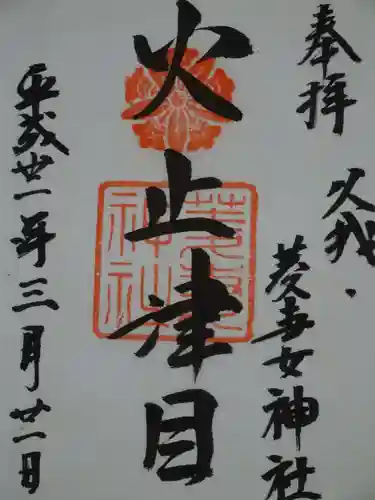 奉拝
久我・
菱妻神社
火止津目
菱妻
神社
平成廿一年三月廿一日